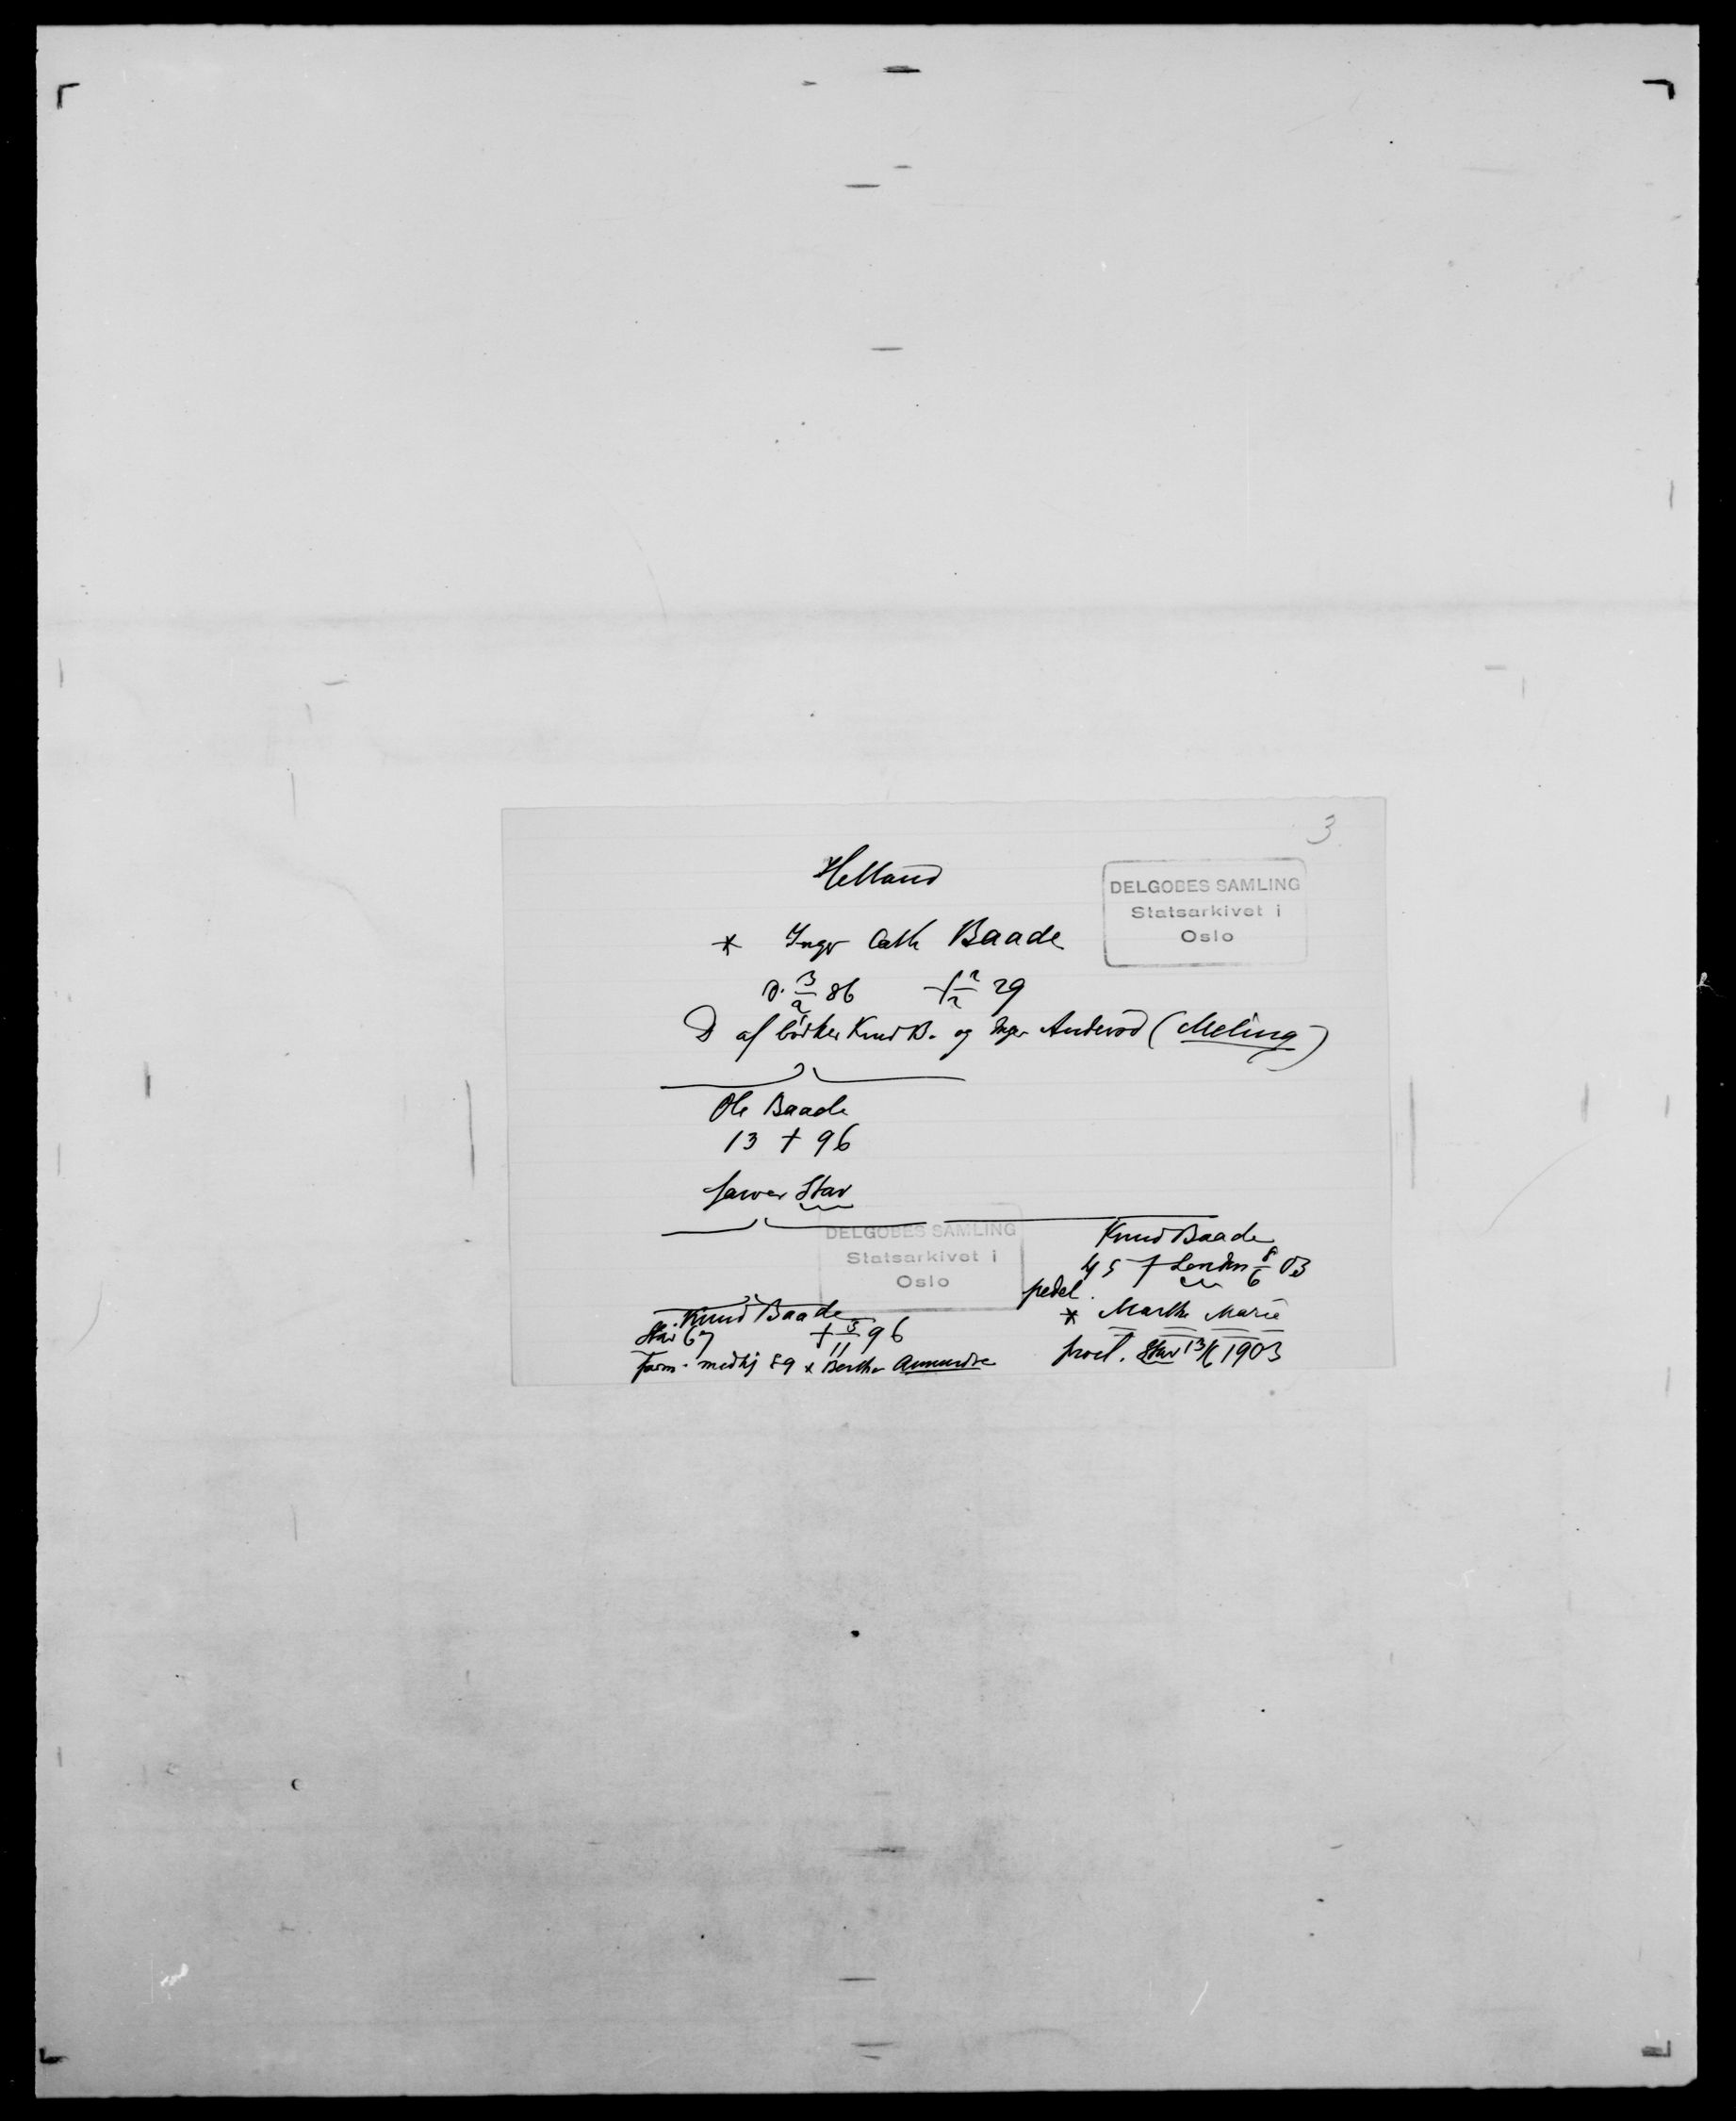 3
Helland
DELGODES SAMLING
Statsarkivet i
Oslo
* Inger Cath Baade
D. 3/9 86 † 2/2 29
D af bödker Knud B. og Inger (Meling)
Ole Baade
13 † 96
farver Stav
DELGODES SAMLING
Statsarkivet i
Oslo
Knud Baade
45 † London 8/6 03
pedel.
* Marthe Marie
Stav 13/6 1903
Knud Baade
Stav 67 † 3/11 96
farm. medhj 89 x Berthe